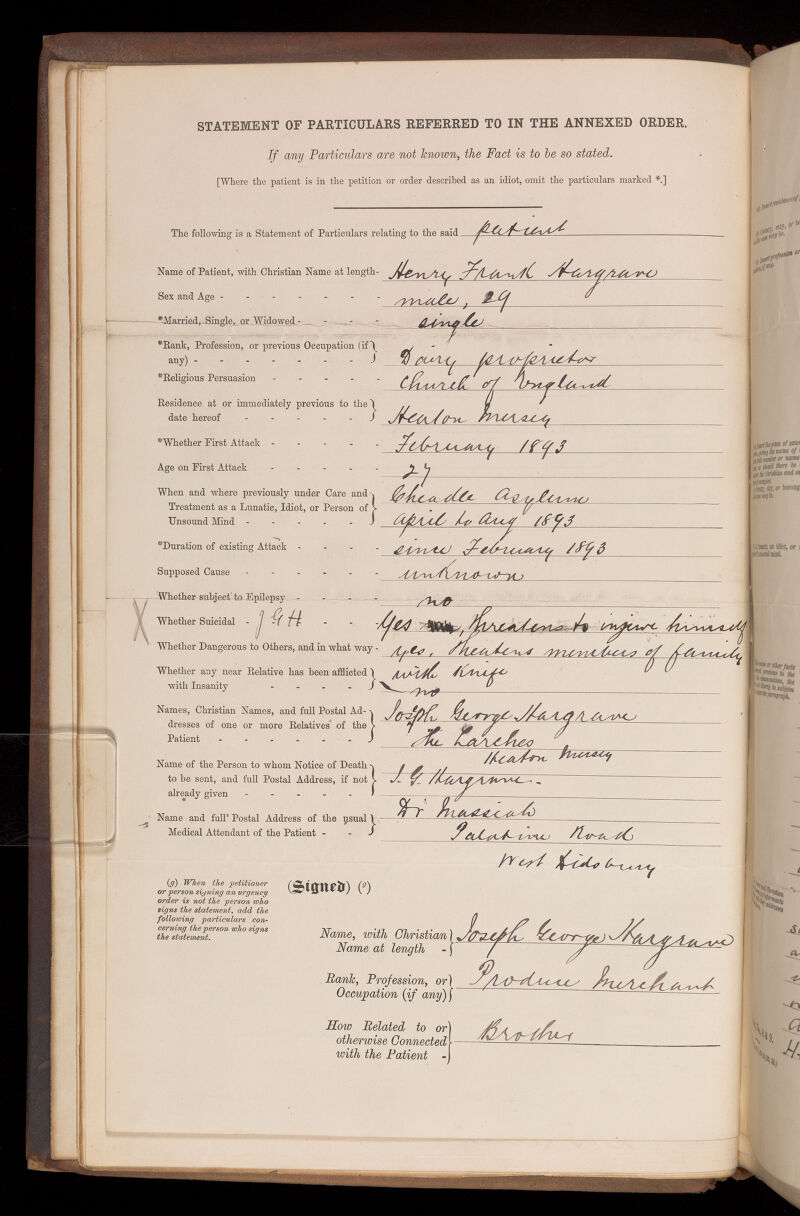 STATEMENT OF PARTICULARS REFERRED TO IN THE ANNEXED ORDER.
If any Particulars are not known, the Fact is to be so stated.
[Where the patient is in the petition or order described as an idiot, omit the particulars marked *.]
The following is a Statement of Particulars relating to the said patient
Name of Patient, with Christian Name at length - Henry Frank Hargrave
Sex and Age - - - - - - - male, 29
*Married, Single, or Widowed - - - - single
*Rank, Profession, or previous Occupation (if
any) - - - - - - - Dairy proprietor
*Religious Persuasion - - - - - Church of England
Residence at or immediately previous to the
date hereof - - - - - Heaton Mersey
*Whether First Attack - - - - - February 1893
Age on First Attack - - - - - 27
When and where previously under Care and Cheadle Asylum
Treatment as a Lunatic, Idiot, or Person of
Unsound Mind - - - - - april to aug 1893
*Duration of existing Attack - - - - since February 1893
Supposed Cause - - - - - - unknown
Whether subject to Epilepsy - - - - no
Whether Suicidal - J G H - - - Yes, threatens to injure himself
Whether Dangerous to Others, and in what way - yes, theatens members of family
Whether any near Relative has been afflicted with Knife
with Insanity - - - - no
Names, Christian Names, and full Postal Ad- Joseph George Hargrave
dresses of one or more Relatives of the The Larches
Patient - - - - - - Heaton Mersey
Name of the Person to whom Notice of Death
to be sent, and full Postal Address, if not J. G. Hargrave.
already given - - - - -
Name and full Postal Address of the usual Dr Massiah
Medical Attendant of the Patient - - Palatine Road
West Didsbury
(g) When the petitioner
or person signing an urgency
order is not the person who
signs the statement, add the
following particulars con-
cerning the person who signs
the statement.
(Signed) (g)
Name, with Christian Joseph George Hargrave
Name at length -
Rank, Profession, or Produce Merchant
Occupation (if any)
How Related to or Brother
otherwise Connected
with the Patient -